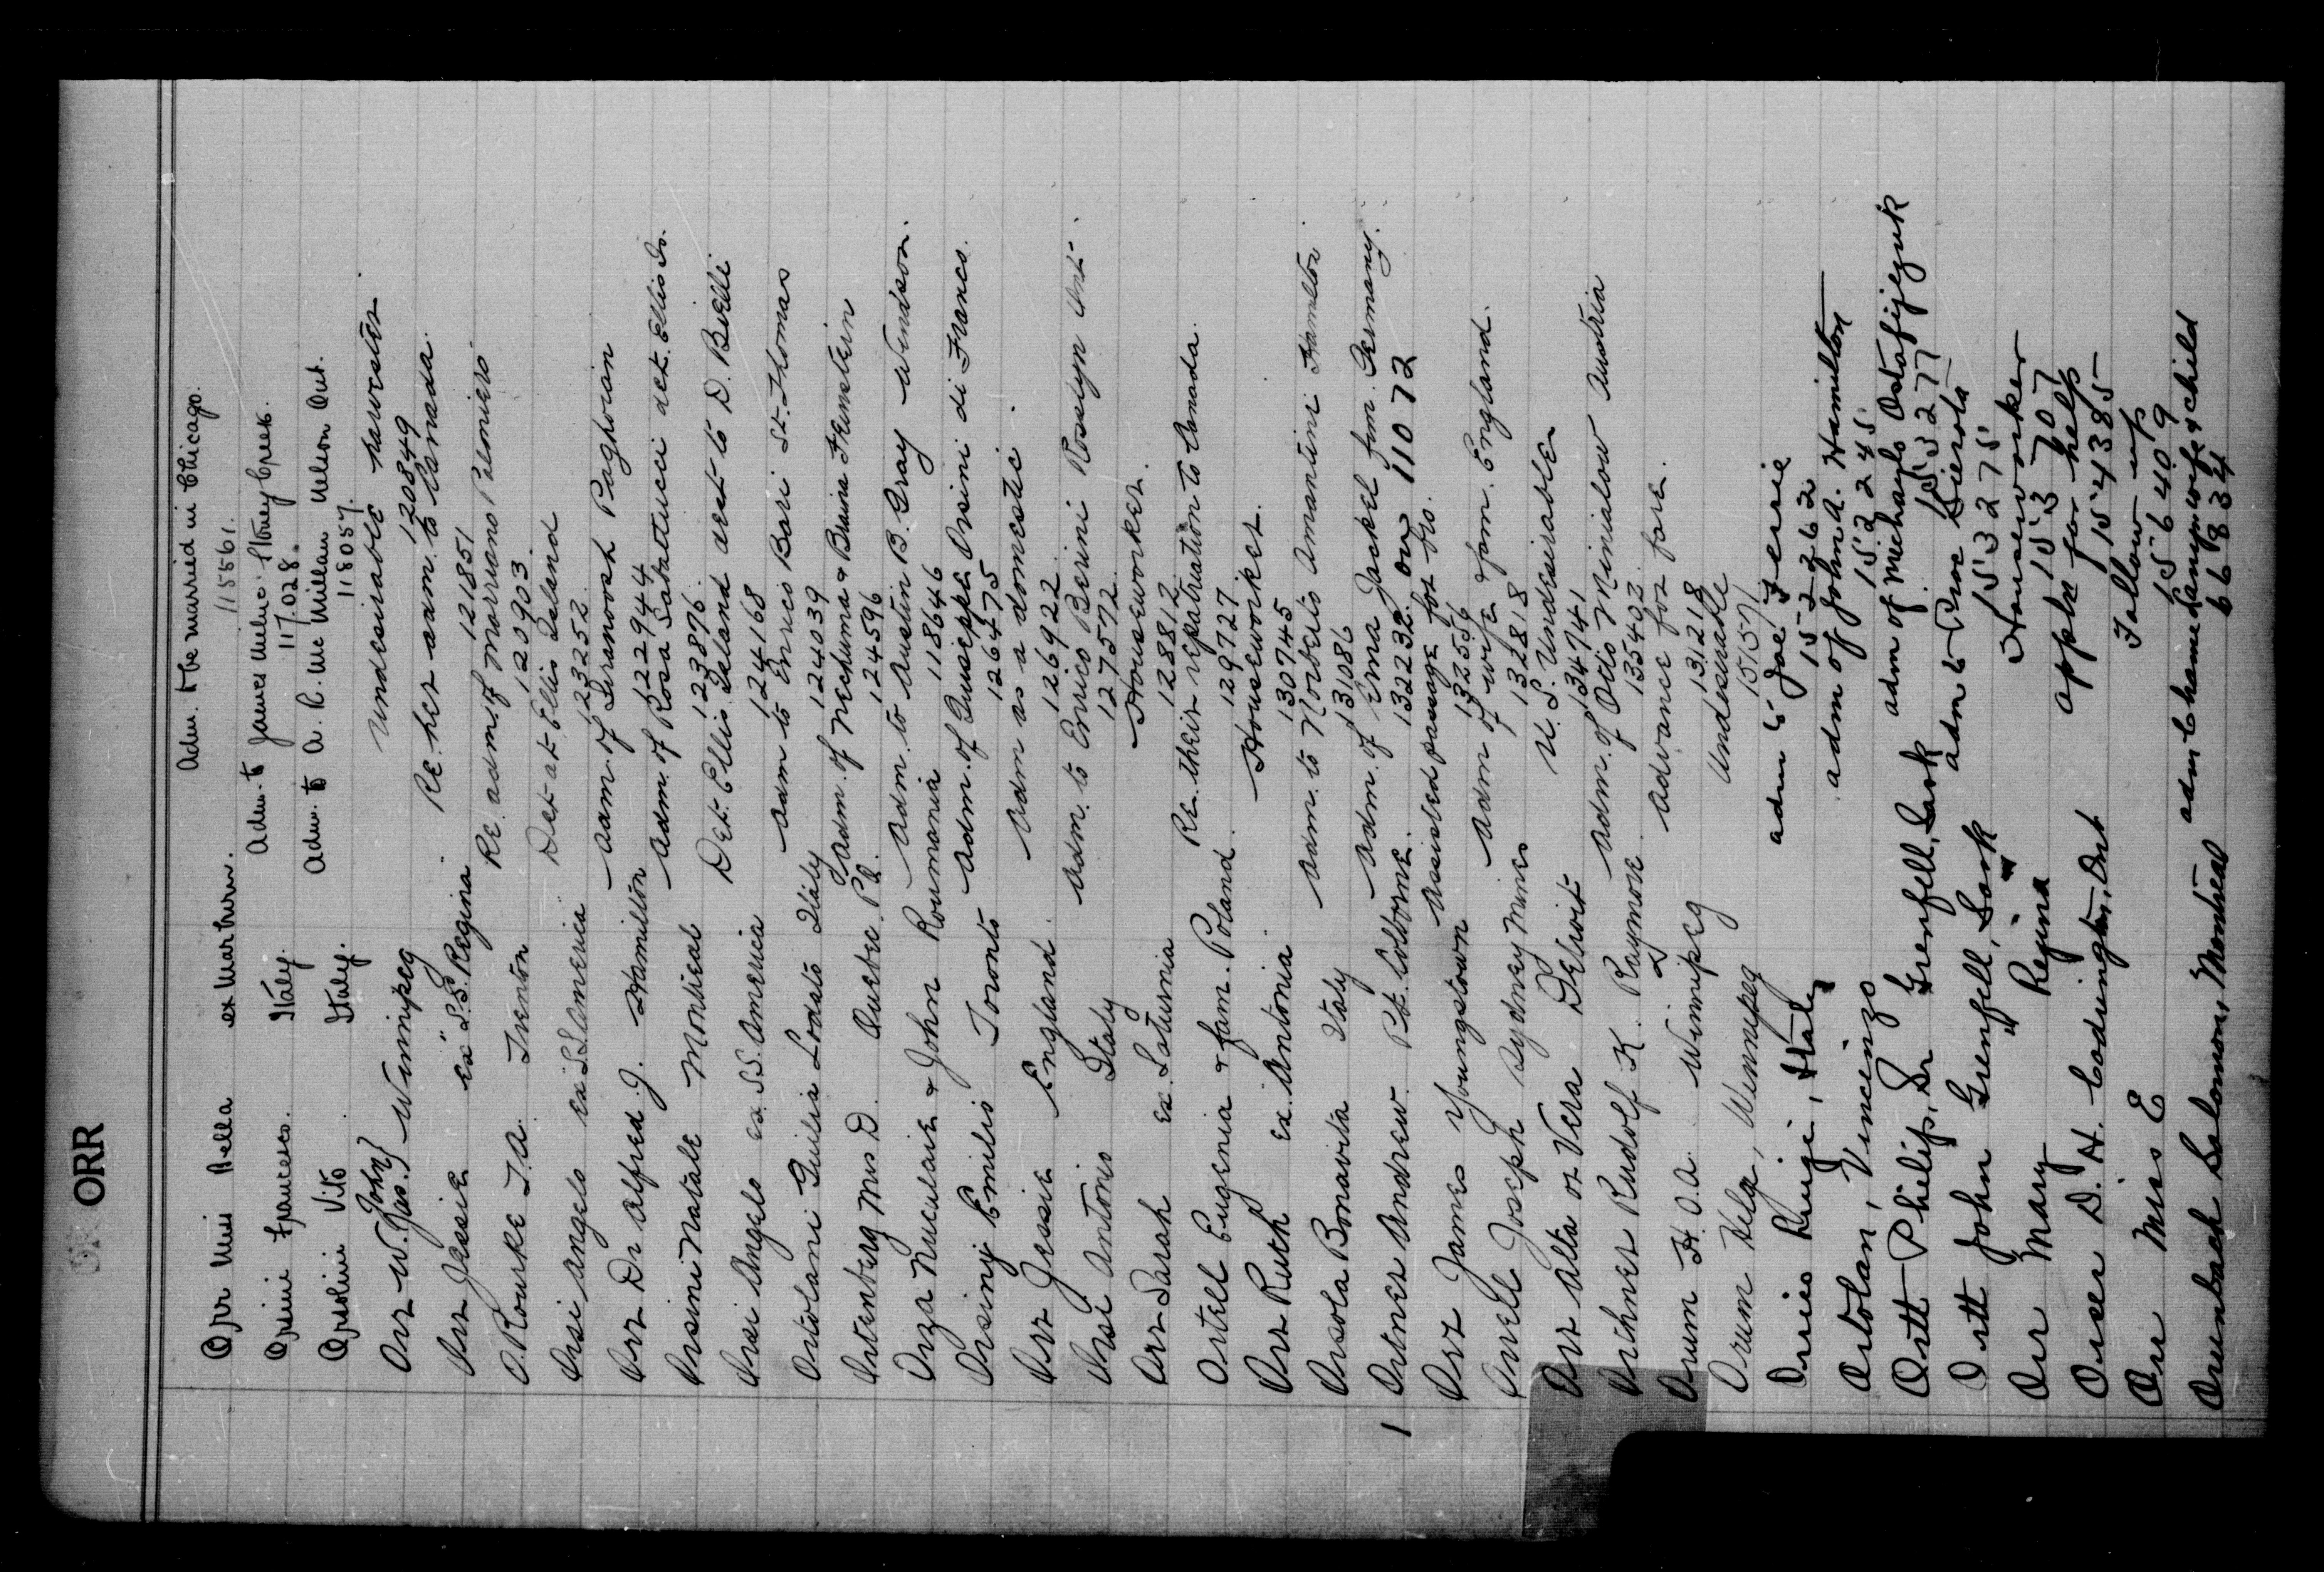 ORR
Orr Miss Nella ex Marburn. Adm. to be married in Chicago. 115561.
Orsini Francesco. Italy. Adm. to James Milne Stoney Creek. 117028.
Orsolini Vito Italy. Adm. to A. R. McMillan Nelson Out. 118057.
Orr W. John} Jas.} Winnipeg Undesirable harvester 120849
Orr Jessie ex "S.S. Regina Re. her adm. to Canada. 121851
O'Rourke T.A. Trenton Re. adm. of Marriano Palomiero 120903
Orsi Angelo ex S.S. America Det. at Ellis Island 123252
Orr Dr Alfred J. Hamilton Adm. of Siranoosh Paghoian 122944
Orsini Natale Montreal Adm. of Rosa Sabatucci det. Ellis Is. 123876
Orsi Angelo ex S.S. America Det. Ellis Island dest. to D. Bielli 124168
Ortolani Guilia Lodato Italy Adm to Enrico Bari St. Thomas 124039
Ortenberg Mrs D. Quebec P.Q. Adm. of Nechuma & Braina Feinstein 124596
Orza Niculaie & John Roumania Adm. to Austin B. Gray Windson. 118646
Orsiny Emilio Toronto Adm. of Guiseppe Orsini di Franco. 126475
Orr Jessie England. Adm as a domestic. 126922
Orsi Antonio Italy Adm. to Enrico Berini Rosslyn Ont. 127572
Orr Sarah ex. Laturnia Houseworker. 128812
Ortell Eugenia & fam. Poland. Re. their repatriation to Canada. 129727
Orr Ruth ex. Antonia. Houseworker. 130745
Orsola Bonavita Italy Adm. to Norberto Amantini Hamilton 131086
1 Ortner Andrew. Pt. Colborne. Adm. of Erna Jackel fam. Germany. 132232 on 11072
Orr James Youngstown Assisted passage for bro. 132556
Orrell Joseph Sydney Mines Adm of wife & fam. England. 132818
Orr Alta or Vera Detroit U.S. Undesirable 134741
Orchner Rudolf K. Raymore Adm. of Otto Minialow Austria 135402
Orum H.O.A. Winnipeg Advance for fare. 131218
Orum Helg, Winnipeg Undesirable 151571
Orsico Luigi, Italy adm to Joe Fessie 152262
Ortolan, Vincenzo adm of John A. Hamilton 152245
Ortt Philip, Sr Grenfell, Sask adm of Michaylo Ostafijezuk 153277
Ortt John Grenfell, Sask adm to Pine Sierota 153275
Orr Mary " Regina " Houseworker 153707
Orser D. H. Codrington, Ont appln for help 154385
Orr Miss E Follow up 156409
Orunbach Solomon, Montreal adm Chame Lanym wife & child 66834